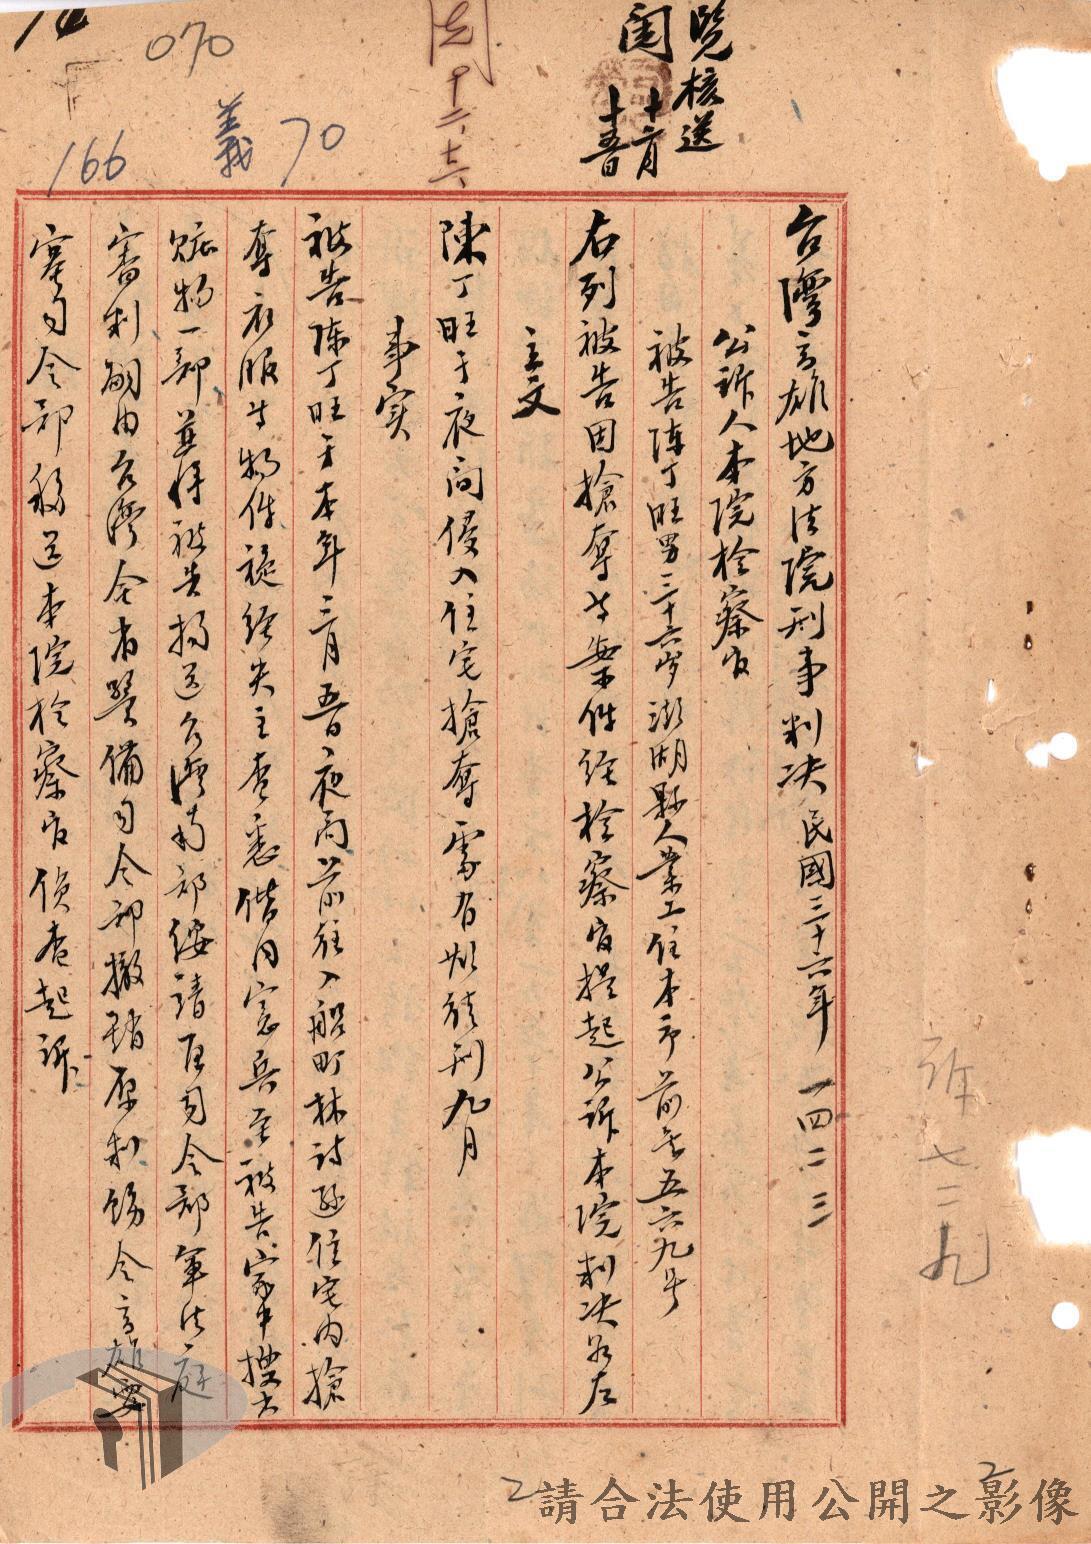 覽核送
閱
十二月
十五日
閱 十二、十六、
070
166
義
70
台灣高雄地方法院刑事判决 民國三十六年 一四二三
訴七二九
公訴人本院檢察官
被告陳丁旺男三十六岁澎湖縣人業工住本市前金五六九号
右列被告因搶奪等案件经檢察官提起公訴本院判决如左
主文
陳丁旺于夜间侵入住宅搶奪處有期徒刑九月
事实
被告陈丁旺于本年三月五日夜间前往入船町林诗孫住宅内搶
奪衣服等物件旋经失主查悉偕同憲兵至被告家中搜出
赃物一部並将被告揚送台灣南部綏靖区司令部軍法庭
審判嗣由台灣全省警備司令部撤銷原判飭令高雄要
塞司令部移送本院檢察官偵查起訴
2
2
請合法使用公開之影像